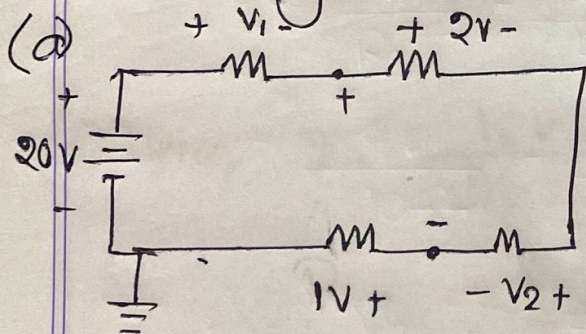 (a)
+ V1 - + 2V -
+ +
20V
- -
1V + - V2 +